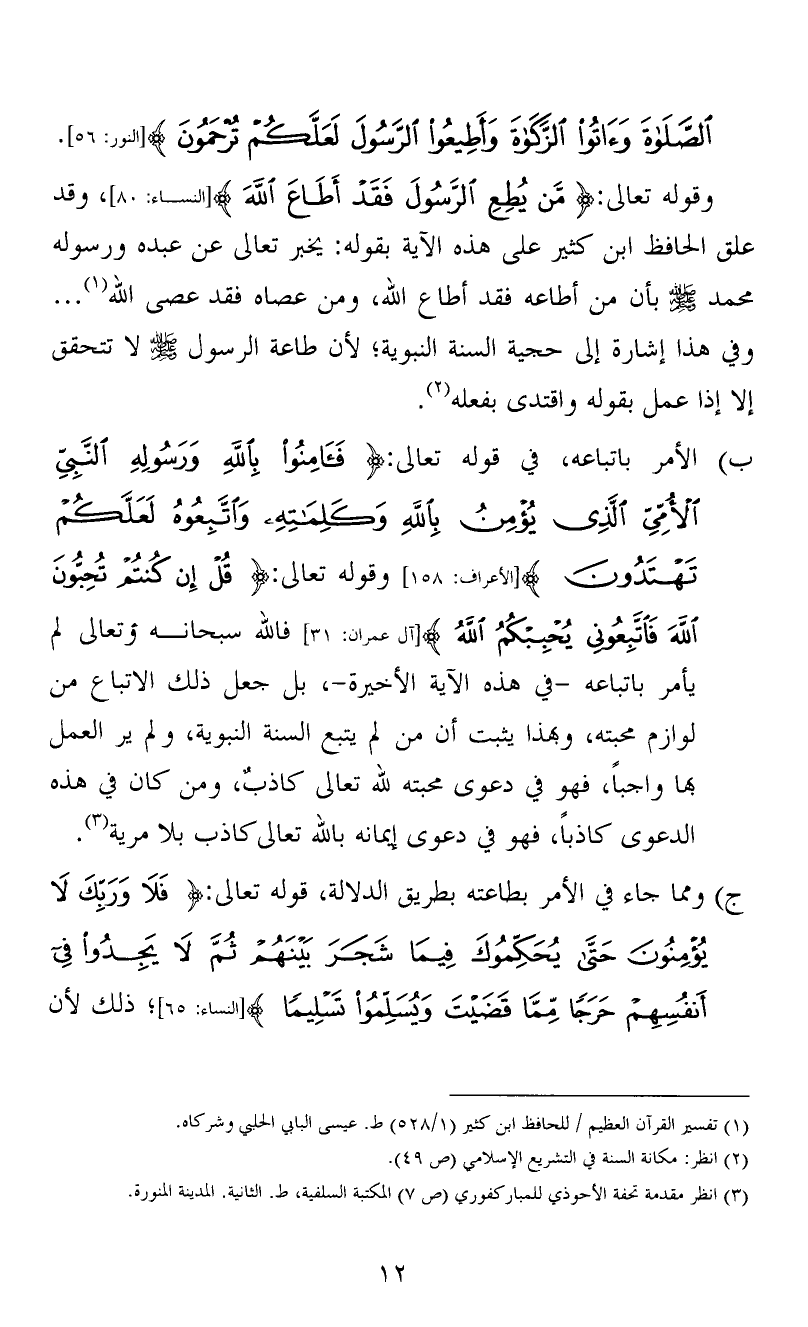 ٱلصَّلَوٰةَ وَءَاتُوا۟ ٱلزَّكَوٰةَ وَأَطِيعُوا۟ ٱلرَّسُولَ لَعَلَّكُمْ تُرْحَمُونَ ﴾[النور: ٥٦].
وقوله تعالى:﴿ مَّن يُطِعِ ٱلرَّسُولَ فَقَدْ أَطَاعَ ٱللَّهَ ﴾[النساء: ٨٠]، وقد
علق الحافظ ابن كثير على هذه الآية بقوله: يخبر تعالى عن عبده ورسوله
محمد ﷺ بأن من أطاعه فقد أطاع الله، ومن عصاه فقد عصى الله(١)...
وفي هذا إشارة إلى حجية السنة النبوية؛ لأن طاعة الرسول ﷺ لا تتحقق
إلا إذا عمل بقوله واقتدى بفعله(٢).
ب) الأمر باتباعه، في قوله تعالى:﴿ فَـَٔامِنُوا۟ بِٱللَّهِ وَرَسُولِهِ ٱلنَّبِىِّ
ٱلْأُمِّىِّ ٱلَّذِى يُؤْمِنُ بِٱللَّهِ وَكَلِمَـٰتِهِۦ وَٱتَّبِعُوهُ لَعَلَّكُمْ
تَهْتَدُونَ ﴾[الأعراف: ١٥٨] وقوله تعالى:﴿ قُلْ إِن كُنتُمْ تُحِبُّونَ
ٱللَّهَ فَٱتَّبِعُونِى يُحْبِبْكُمُ ٱللَّهُ ﴾[آل عمران: ٣١] فالله سبحانه وتعالى لم
يأمر باتباعه –في هذه الآية الأخيرة–، بل جعل ذلك الاتباع من
لوازم محبته، وبهذا يثبت أن من لم يتبع السنة النبوية، ولم ير العمل
بها واجباً، فهو في دعوى محبته لله تعالى كاذبٌ، ومن كان في هذه
الدعوى كاذباً، فهو في دعوى إيمانه بالله تعالى كاذب بلا مرية(٣).
ج) ومما جاء في الأمر بطاعته بطريق الدلالة، قوله تعالى:﴿ فَلَا وَرَبِّكَ لَا
يُؤْمِنُونَ حَتَّىٰ يُحَكِّمُوكَ فِيمَا شَجَرَ بَيْنَهُمْ ثُمَّ لَا يَجِدُوا۟ فِىٓ
أَنفُسِهِمْ حَرَجًا مِّمَّا قَضَيْتَ وَيُسَلِّمُوا۟ تَسْلِيمًا ﴾[النساء: ٦٥]؛ ذلك لأن
(١) تفسير القرآن العظيم / للحافظ ابن كثير (٥٢٨/١) ط. عيسى البابي الحلبي وشركاه.
(٢) انظر: مكانة السنة في التشريع الإسلامي (ص ٤٩).
(٣) انظر مقدمة تحفة الأحوذي للمباركفوري (ص ٧) المكتبة السلفية، ط. الثانية. المدينة المنورة.
١٢